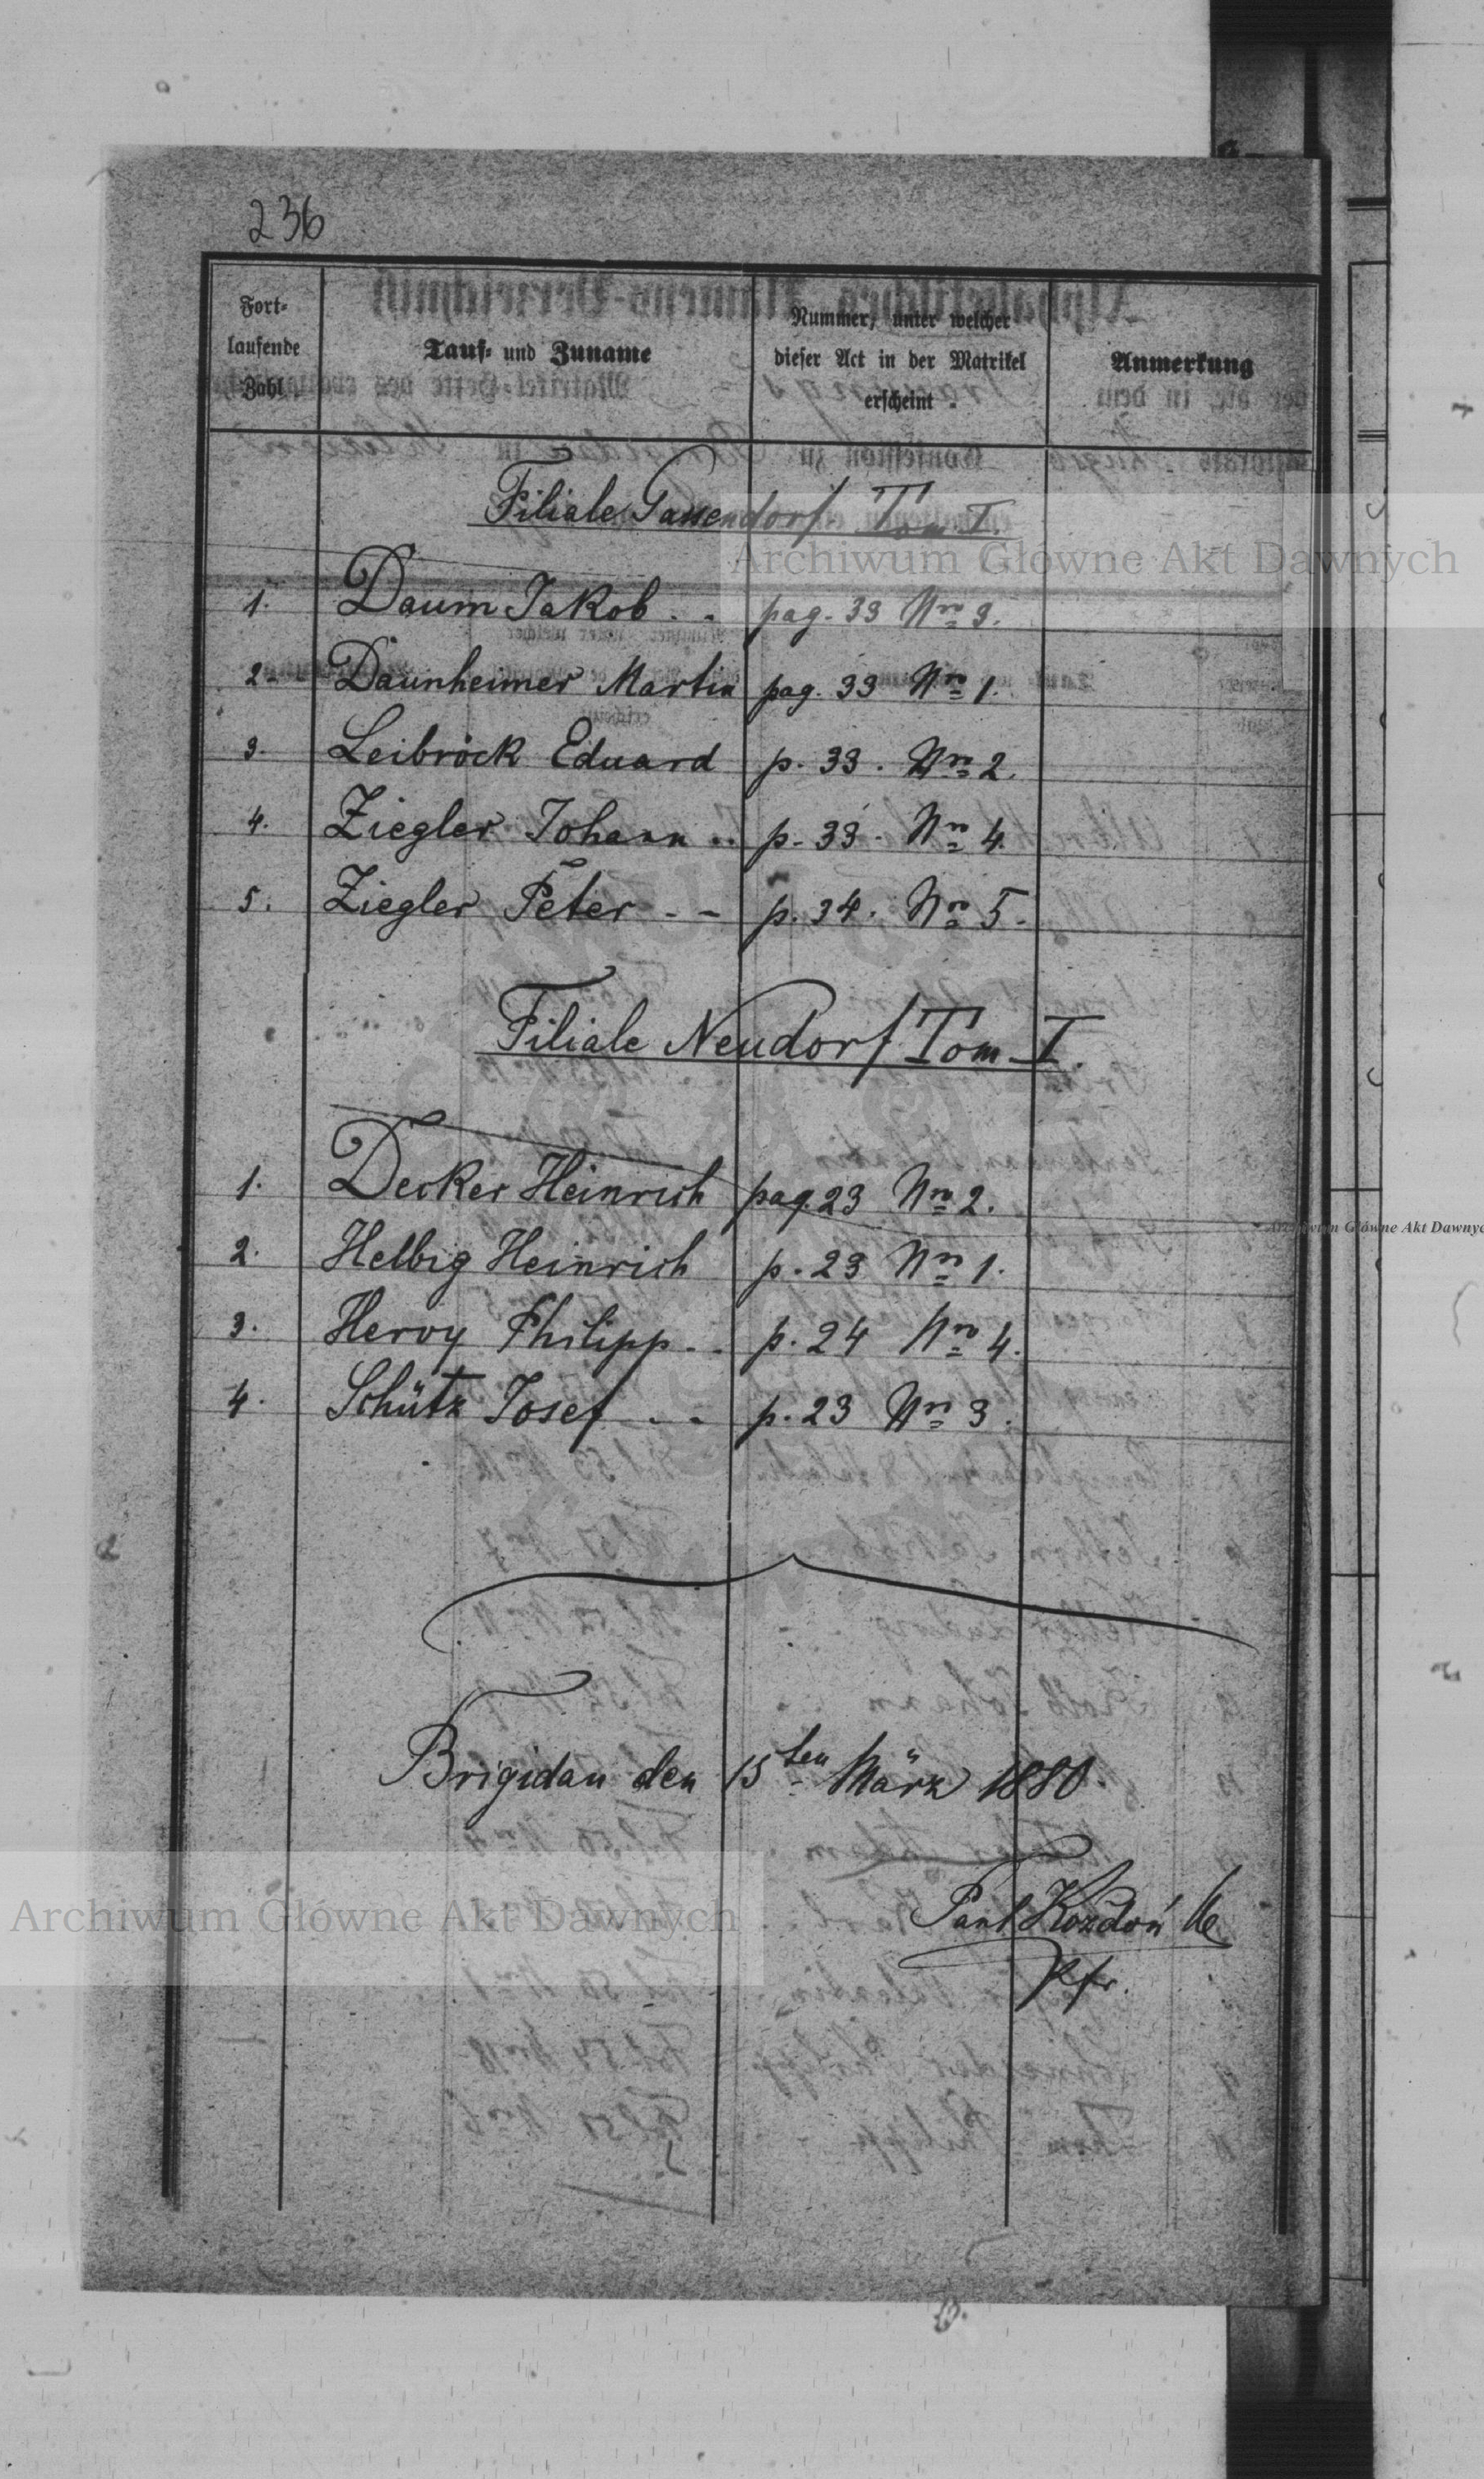 236
Fort-
laufende
Zahl
Tauf- und Zuname
Nummer, unter welcher
dieser Act in der Matrikel
erscheint.
Anmerkung
Filiale Gassendorf Tom I.
1. Daum Jakob . . pag. 33 Nro 3.
2. Daunheimer Martin pag. 33 Nro 1.
3. Leibrock Eduard p. 33. Nro 2.
4. Ziegler Johann .. p. 33. Nro 4.
5. Ziegler Peter - - p. 34. Nro 5.
Filiale Neudorf Tom I.
1. Decker Heinrich pag. 23 Nro 2.
2. Helbig Heinrich p. 23 Nro 1.
3. Hervy Philipp . . p. 24 Nro 4.
4. Schütz Josef . . p. 23 Nro 3.
Brigidau den 15ten März 1880.
Paul Kozdoń
Pfr.
Archiwum Główne Akt Dawnych
Archiwum Główne Akt Dawnych